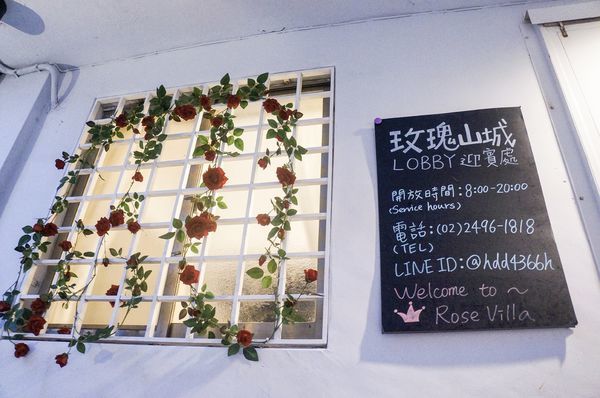 玫瑰山城
LOBBY 迎賓處
開放時間：8:00-20:00
(Service hours)
電話：(02)2496-1818
(TEL)
LINE ID：@hdd4366h
Welcome to ～
Rose Villa